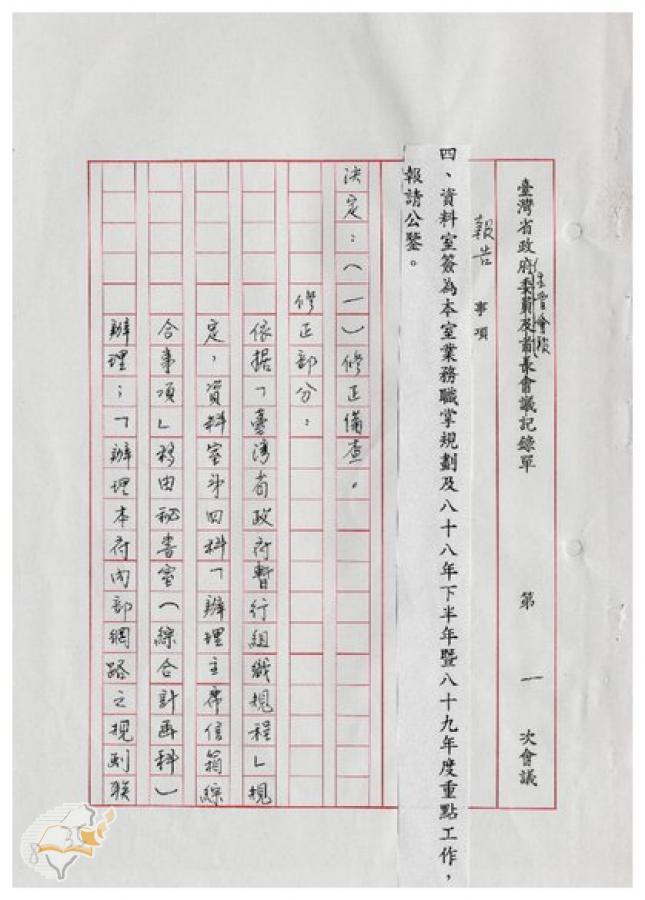 臺灣省政府委員會議記錄單 第一次會議
報告事項
四、資料室簽為本室業務職掌規劃及八十八年下半年暨八十九年度重點工作，
報請公鑒。
決定：（一）修正備查。
修正部分：
依據「臺灣省政府暫行組織規程」規
定，資料室第四科「辦理主席信箱綜
合事項」移由秘書室（綜合計畫科）
辦理；「辦理本府內部網路之規劃聯